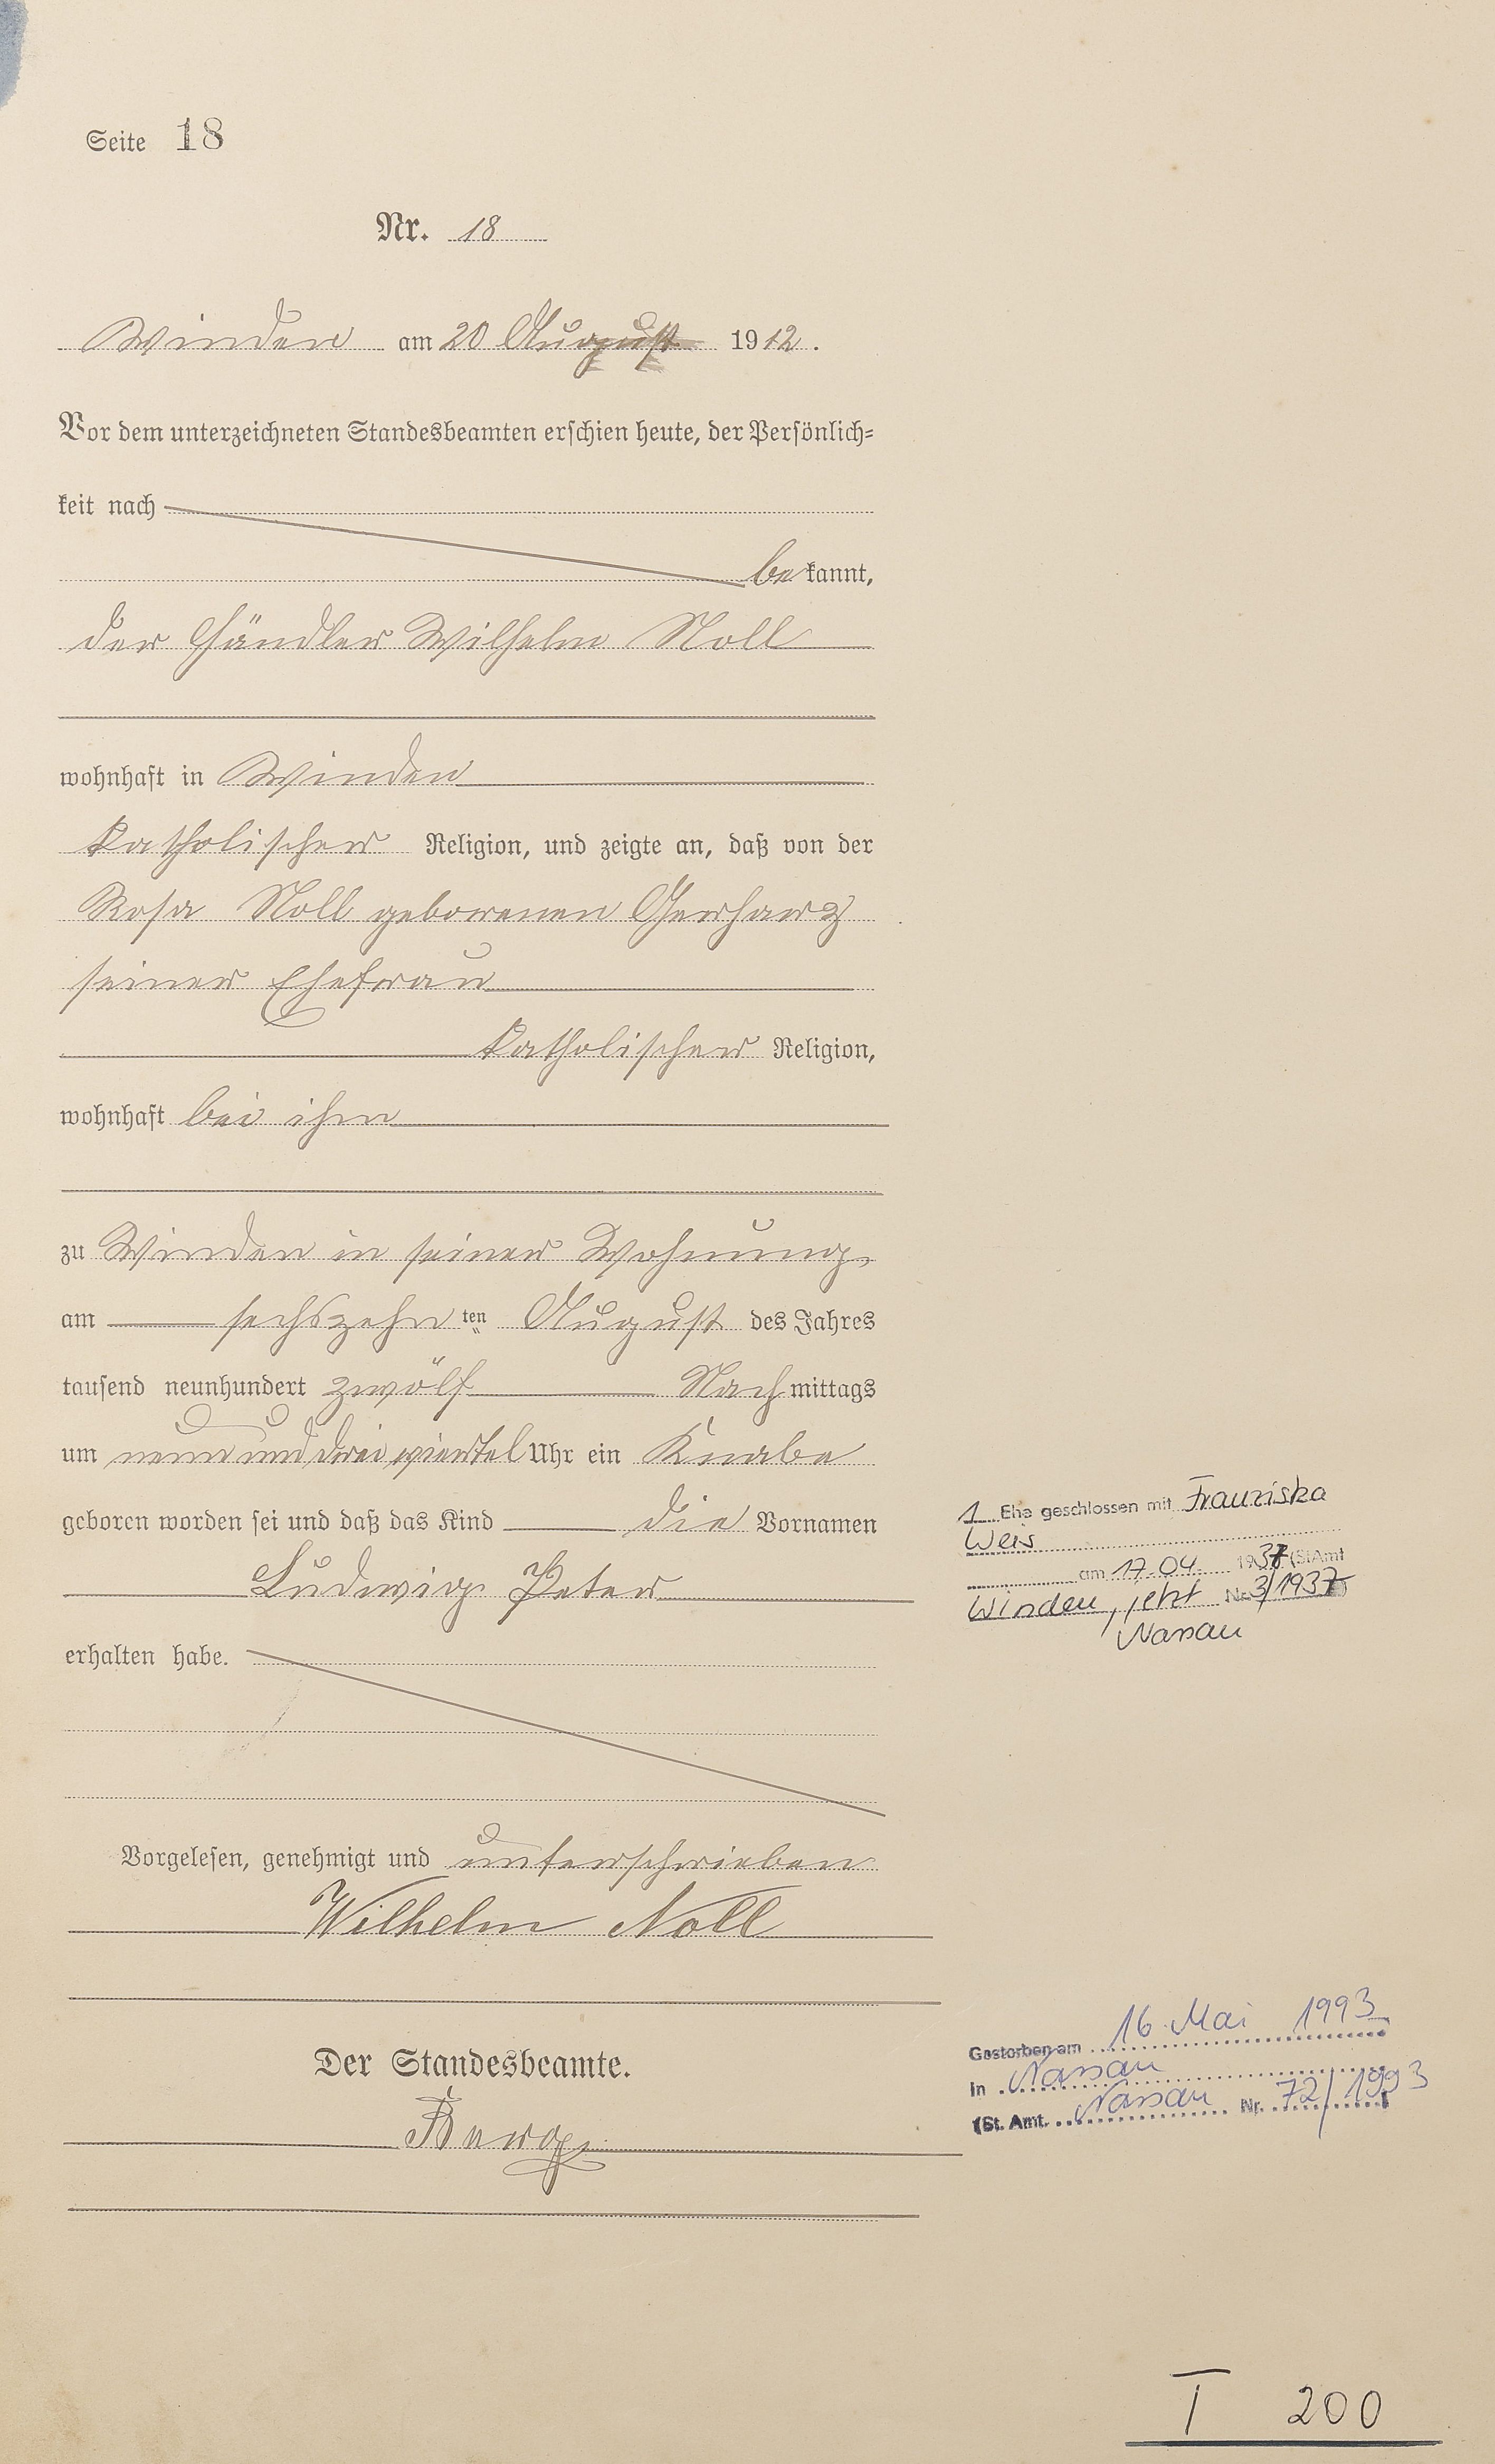 Seite 18
Nr. 18
Winden am 20 August 1912.
Vor dem unterzeichneten Standesbeamten erschien heute, der Persönlich=
keit nach
bekannt,
der Händler Wilhelm Noll
wohnhaft in Winden
katholischer Religion, und zeigte an, daß von der
Rosa Noll geborenen Gerharz
seiner Ehefrau
katholischer Religion,
wohnhaft bei ihm
zu Winden in seiner Wohnung,
am sechszehnten August des Jahres
tausend neunhundert zwölf Nachmittags
um neun und drei viertel Uhr ein Knabe
geboren worden sei und daß das Kind die Vornamen
Ludwig Peter
erhalten habe.
Vorgelesen, genehmigt und unterschrieben
Wilhelm Noll
Der Standesbeamte.
1. Ehe geschlossen mit Franziska
Weis
am 17.04. 1937 (StAmt
Winden, jetzt Nr. 3/1937)
Nassau
Gestorben am 16. Mai 1993
in Nassau
(St. Amt. Nassau Nr. 72/1993
I 200